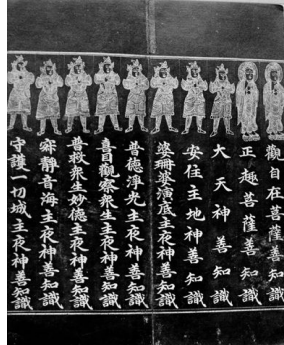 觀自在菩薩善知識
正趣菩薩善知識
大天神善知識
安住主地神善知識
婆珊婆演底主夜神善知識
普德淨光主夜神善知識
喜目觀察衆生主夜神善知識
普救衆生妙德主夜神善知識
寂靜音海主夜神善知識
守護一切城主夜神善知識